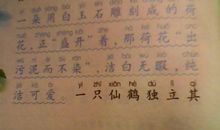 一朵用白玉石雕刻成的荷
花，正“盛开”着，那荷花“出
污泥而不染”，洁白无瑕，纯
洁可爱。一只仙鹤独立其